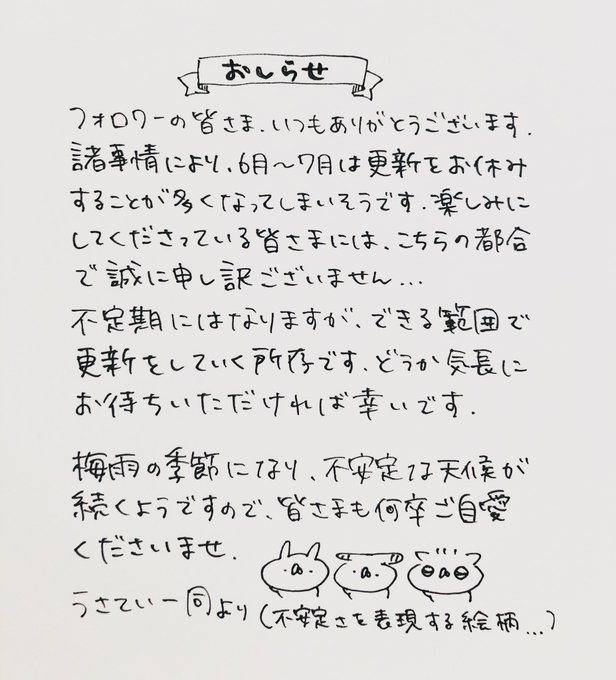 おしらせ
フォロワーの皆さま、いつもありがとうございます.
諸事情により、6月〜7月は更新をお休み
することが多くなってしまいそうです. 楽しみに
してくださっている皆さまには、こちらの都合
で誠に申し訳ございません...
不定期にはなりますが、できる範囲で
更新をしていく所存です. どうか気長に
お待ちいただければ幸いです.
梅雨の季節になり、不安定な天候が
続くようですので、皆さまも何卒ご自愛
くださいませ.
うさてい一同より (不安定さを表現する絵柄...)